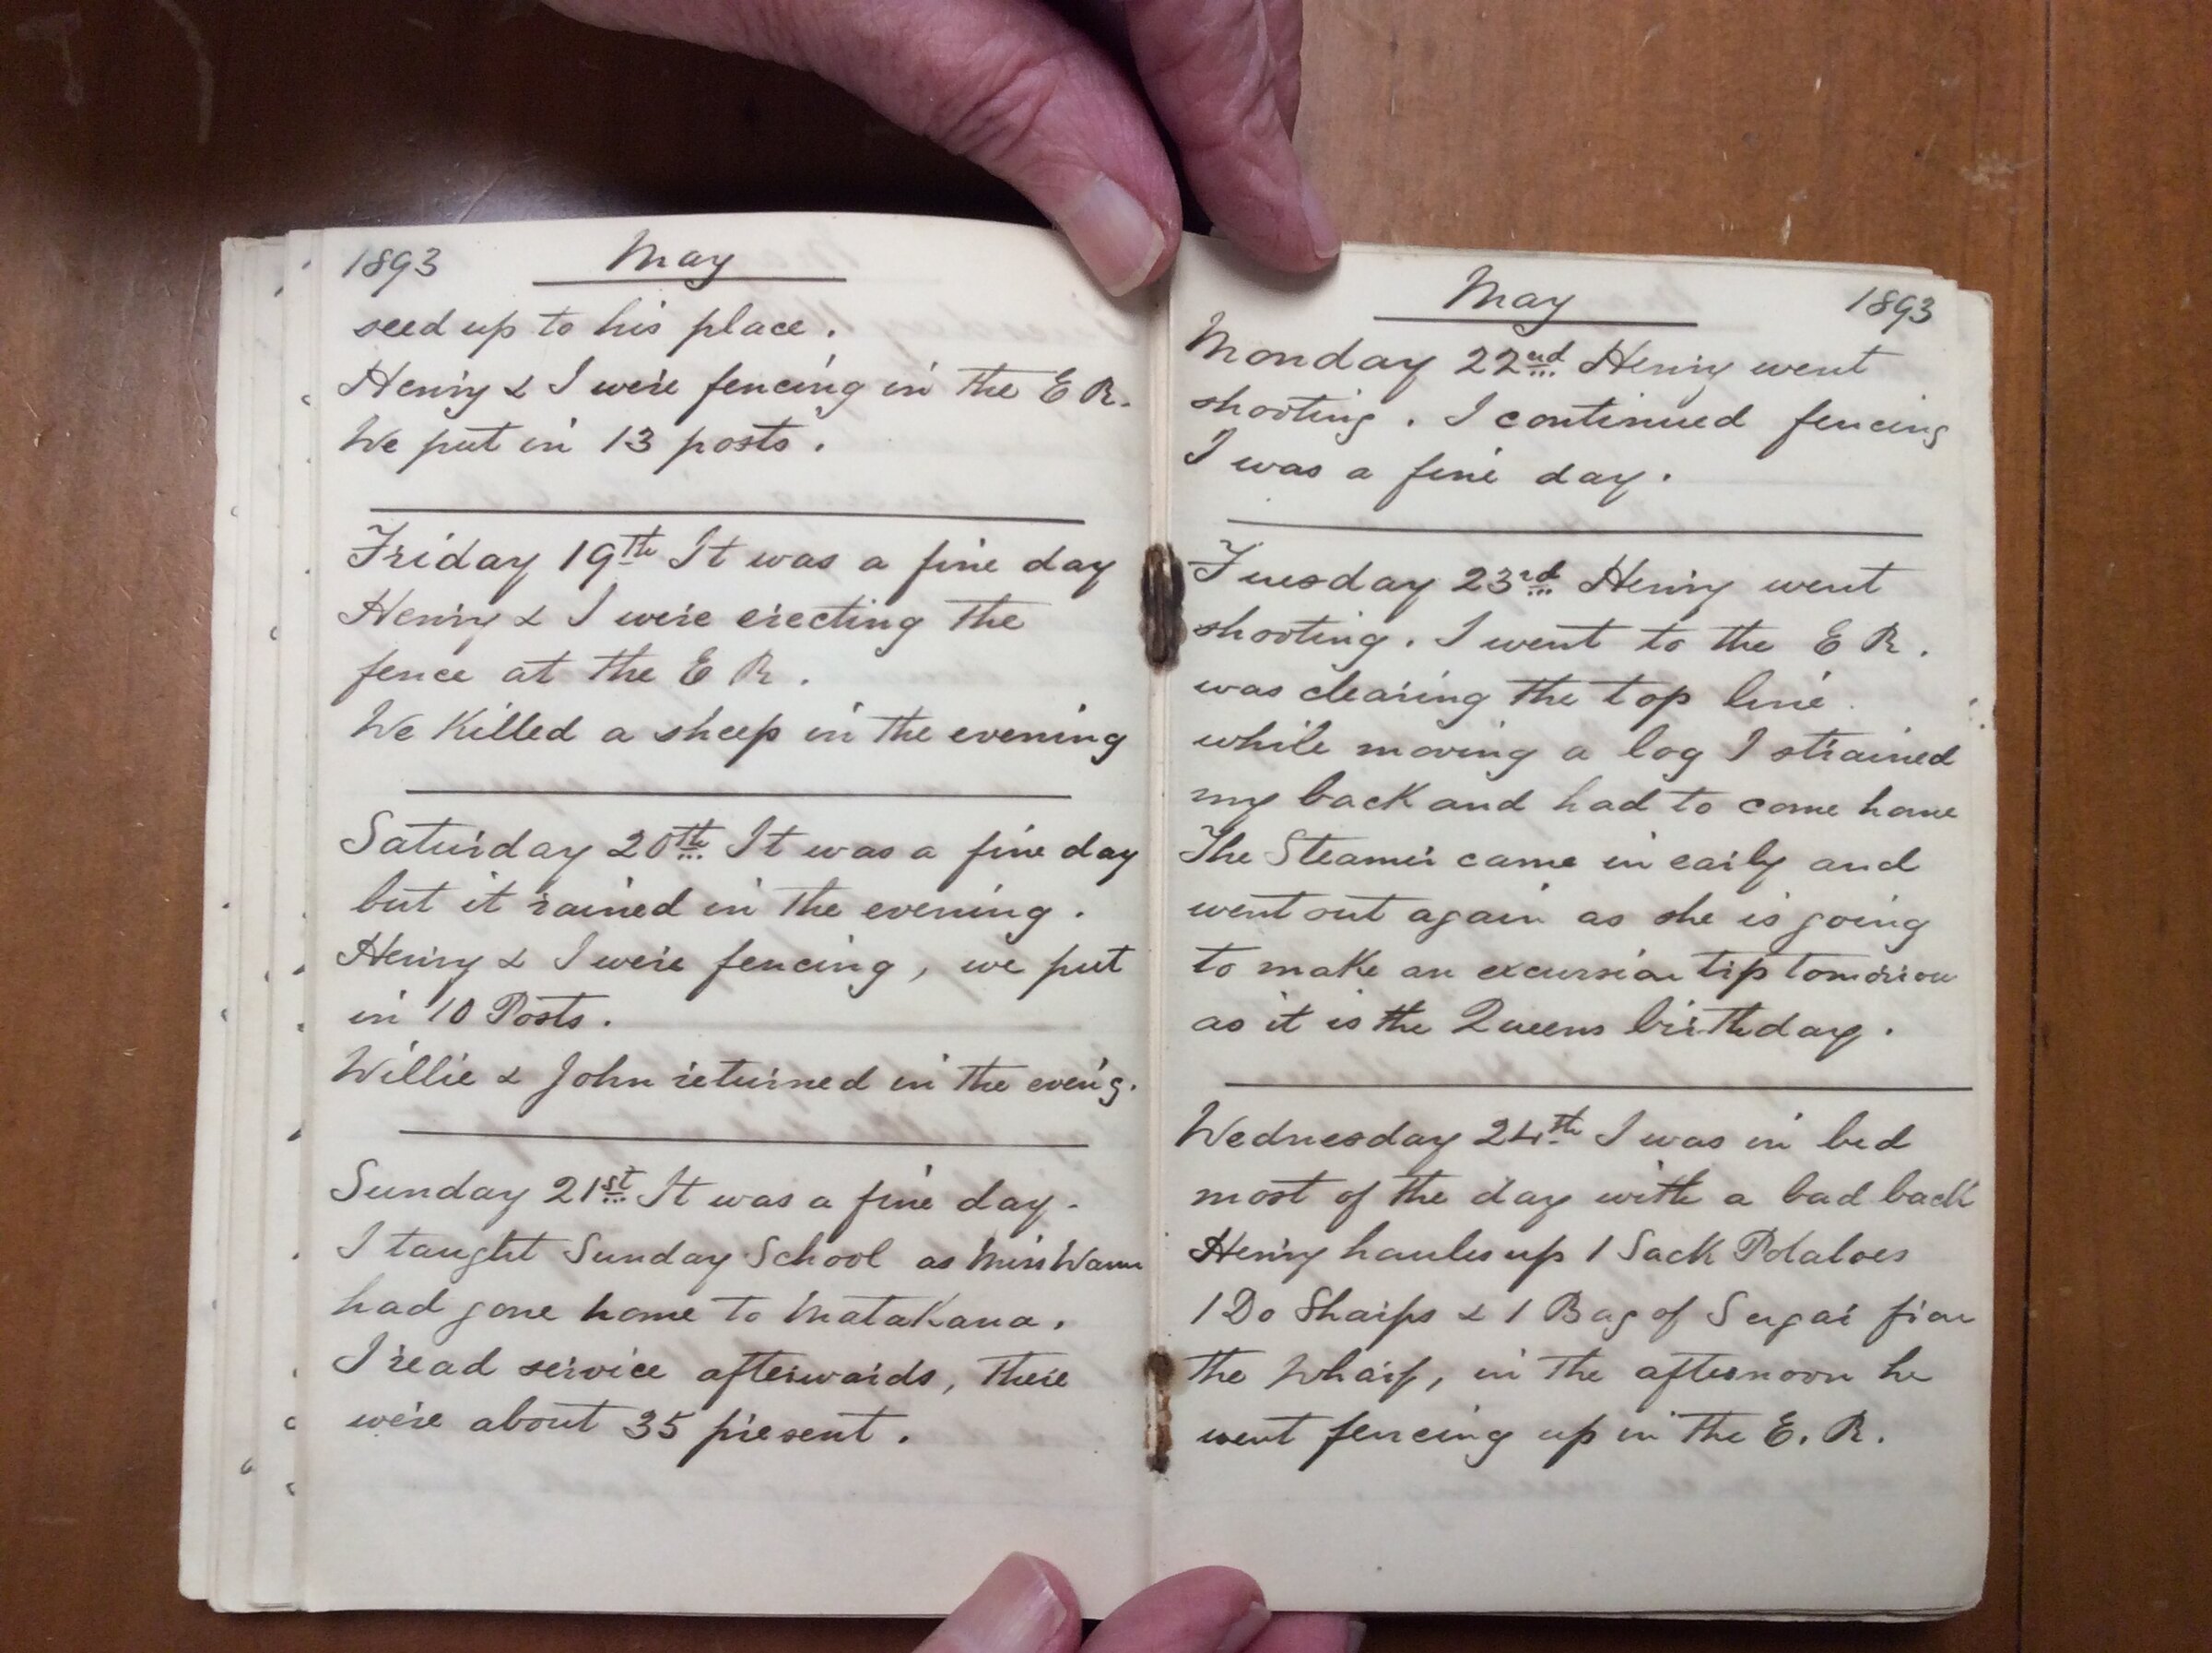 1893 May
seed up to his place.
Henry & I were fencing in the E R.
We put in 13 posts.
Friday 19th It was a fine day
Henry & I were erecting the
fence at the E R.
We Killed a sheep in the evening
Saturday 20th It was a fine day
but it rained in the evening.
Henry & I were fencing, we put
in 10 Posts.
Willie & John returned in the eveng.
Sunday 21st It was a fine day.
I taught Sunday School as Miss
had gone home to Matakana.
I read service afterwards, there
were about 35 present.
May 1893
Monday 22nd Henry went
shooting. I continued fencing
I was a fine day.
Tuesday 23rd Henry went
shooting. I went to the E R.
was clearing the top line.
while moving a log I strained
my back and had to come home
The Steamer came in early and
went out again as she is going
to make an excursion tip tomorrow
as it is the Queens birthday.
Wednesday 24th I was in bed
most of the day with a bad back
Henry haules up 1 Sack Potatoes
1 Do Sharps & 1 Bag of Sugar from
the Wharf, in the afternoon he
went fencing up in the E. R.